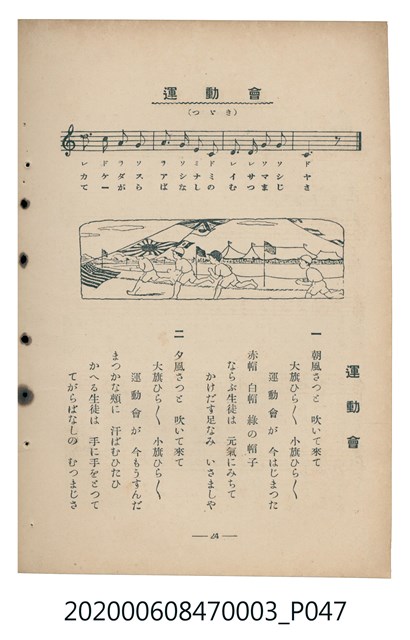 運動會
(つゞき)
レ ド ラ ソ ラ ソ ミ ド レ ミ レ ソ ソ ド
運動會
一 朝風さつと 吹いて來て
大旗ひら〱 小旗ひら〱
運動會が 今はじまつた
赤帽 白帽 綠の帽子
ならぶ生徒は 元氣にみちて
かけだす足なみ いさましや
二 夕風さつと 吹いて來て
大旗ひら〱 小旗ひら〱
運動會が 今もうすんだ
まつかな頰に 汗ばむひたひ
かへる生徒は 手に手をとつて
てがらばなしの むつまじさ
24
202000608470003_P047